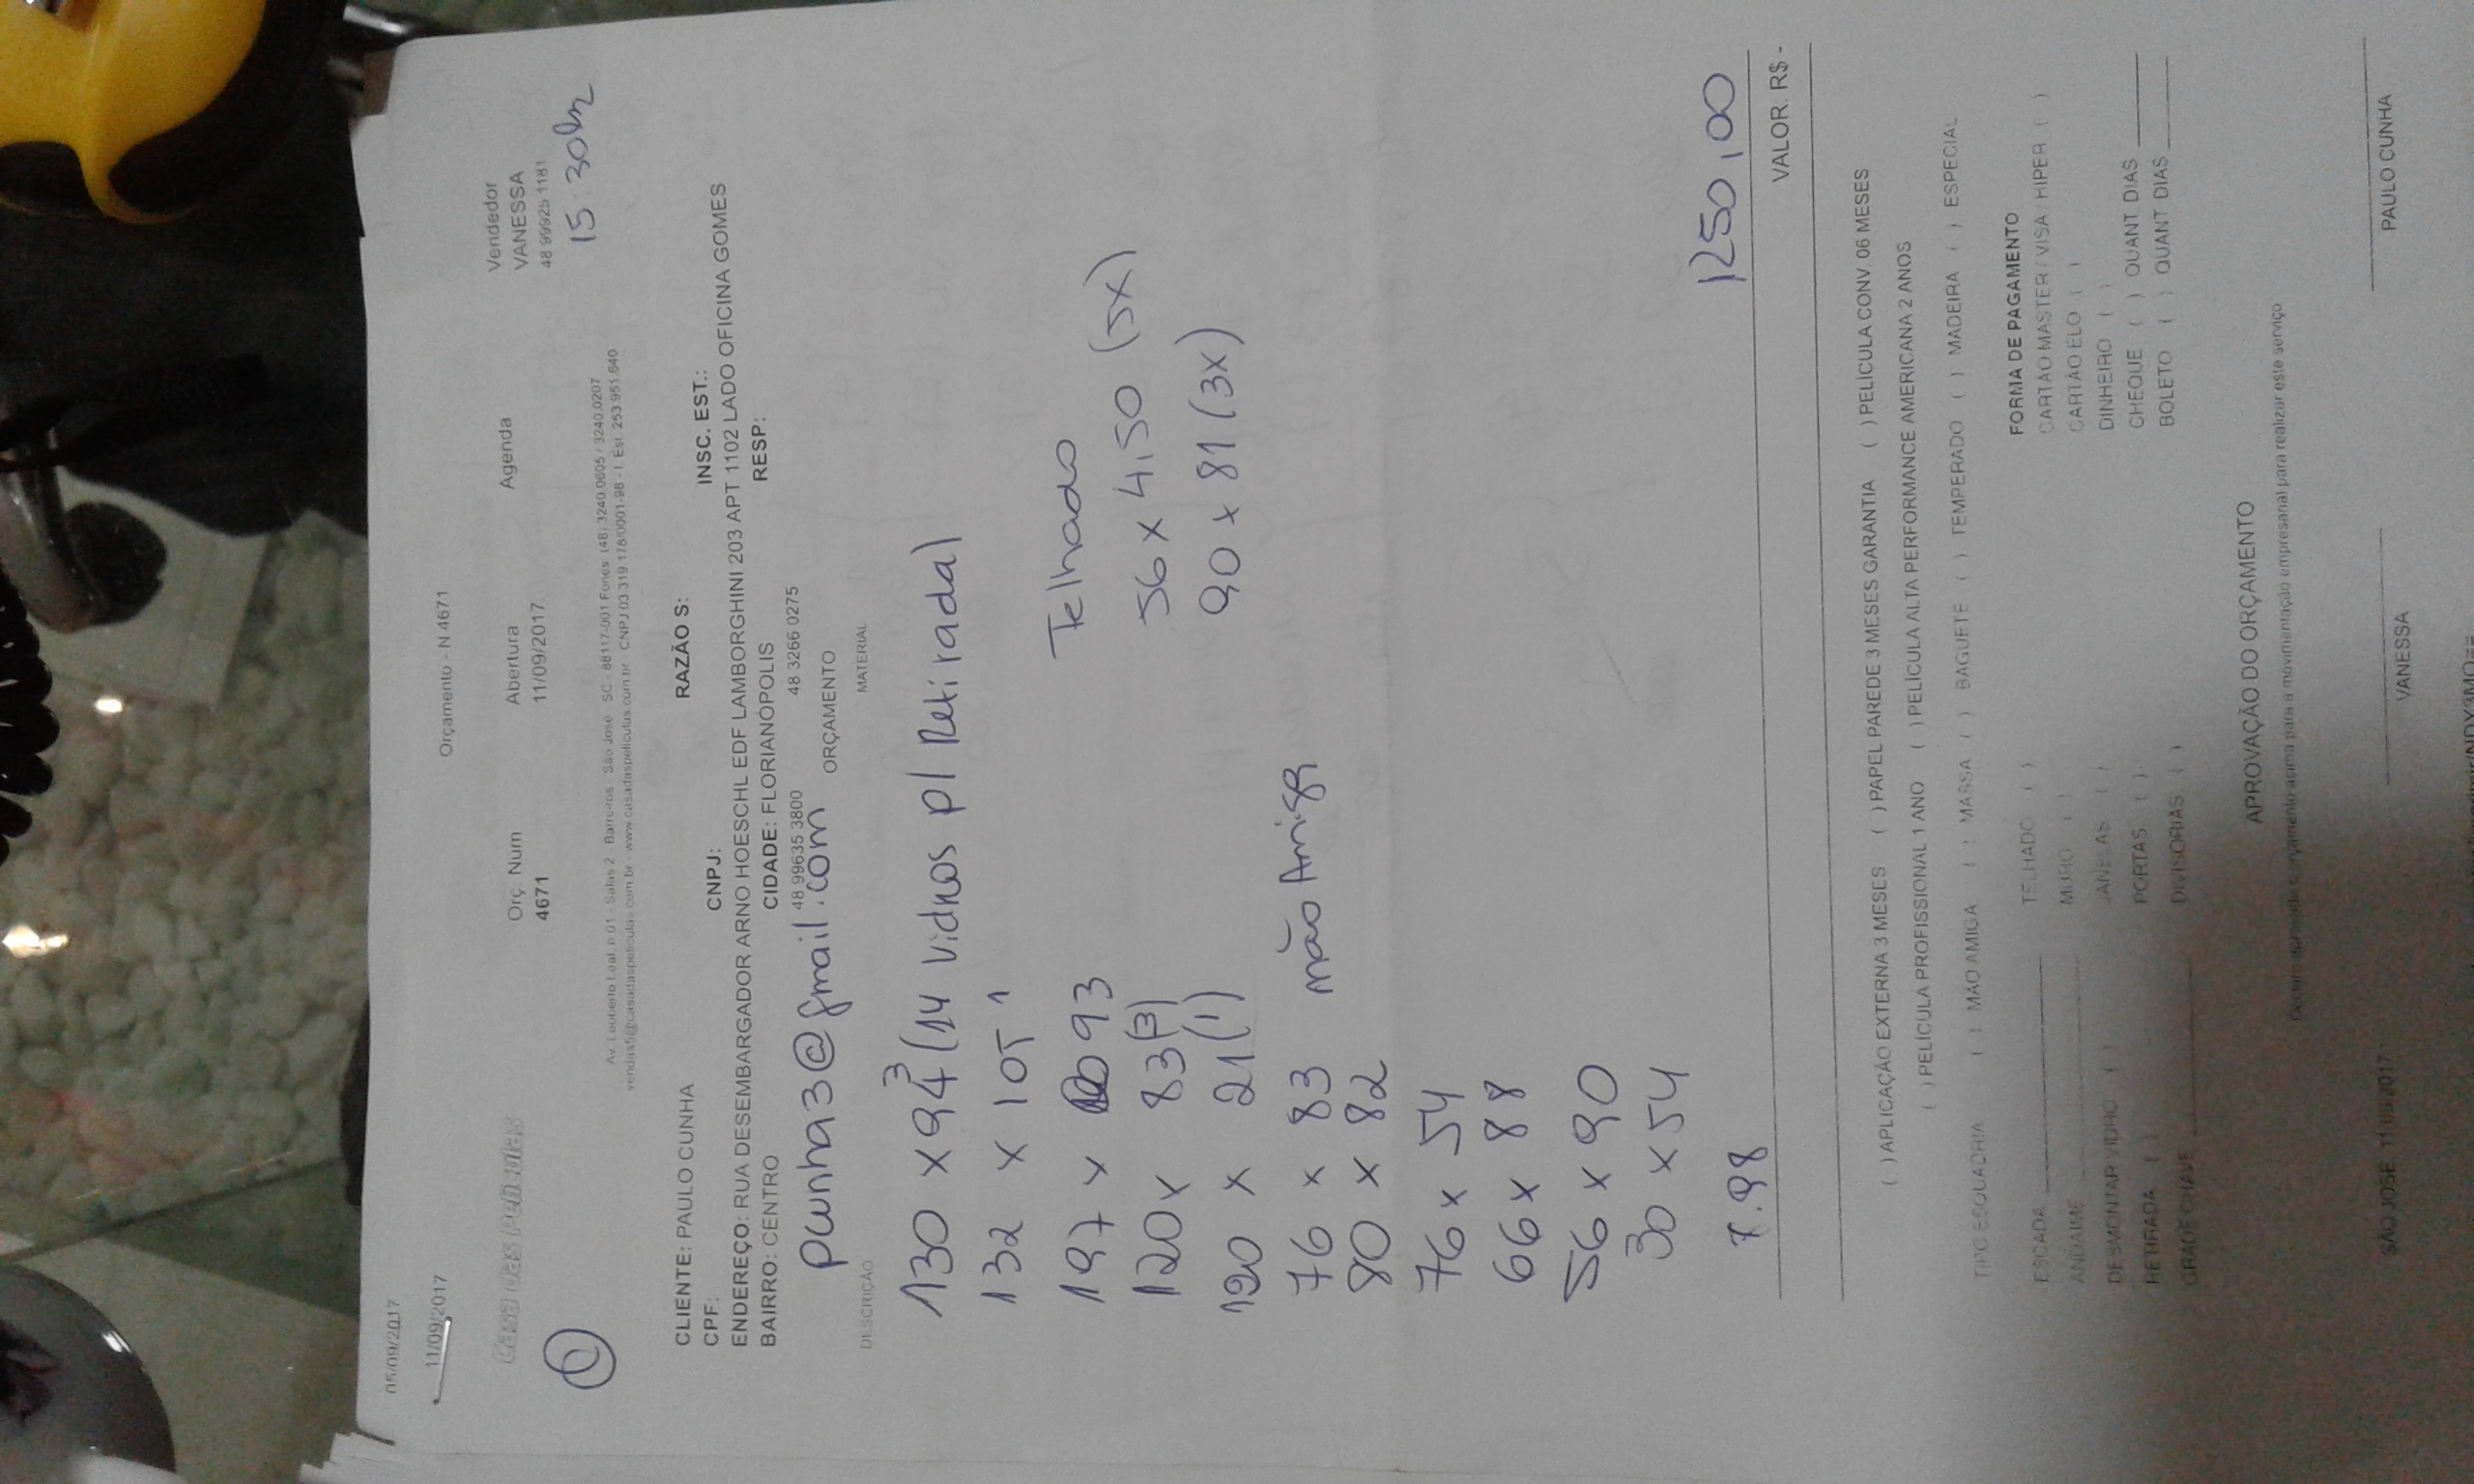 05/09/2017
11/09/2017
Orçamento - N 4671
Orç. Núm
4671
Abertura
11/09/2017
Agenda
Vendedor
VANESSA
48 99925 1181
15:30hr
1
Salas 2 Barreiros São José SC - 88117-001 Fones (48) 3240.0605 / 3240.0207
www.casadaspeliculas.com.br - CNPJ 03 319 178/0001-98 - I. Est. 253.951.640
CLIENTE: PAULO CUNHA
RAZÃO S:
CPF:
CNPJ:
INSC. EST.:
ENDEREÇO: RUA DESEMBARGADOR ARNO HOESCHL EDF LAMBORGHINI 203 APT 1102 LADO OFICINA GOMES
BAIRRO: CENTRO
CIDADE: FLORIANÓPOLIS
RESP:
48 99635 3800
48 3266 0275
pcunha3@gmail.com
ORÇAMENTO
DESCRIÇÃO
MATERIAL
130 x 94 3 (14 vidros p/ Retirada)
132 x 105 1
197 x 93
Telhado
120 x 83 (3)
56 x 4,50 (5x)
120 x 21 (1)
90 x 81 (3x)
76 x 83
mão Amiga
80 x 82
76 x 54
66 x 88
56 x 90
30 x 54
7.98
1250,00
VALOR: R$ -
( ) APLICAÇÃO EXTERNA 3 MESES ( ) PAPEL PAREDE 3 MESES GARANTIA ( ) PELÍCULA CONV. 06 MESES
( ) PELÍCULA PROFISSIONAL 1 ANO ( ) PELÍCULA ALTA PERFORMANCE AMERICANA 2 ANOS
TIPO ESQUADRIA ( ) MÃO AMIGA ( ) MASSA ( ) BAGUETE ( ) TEMPERADO ( ) MADEIRA ( ) ESPECIAL
FORMA DE PAGAMENTO
ESCADA
TELHADO ( )
CARTÃO MASTER / VISA / HIPER ( )
ANDAIME
MURO ( )
CARTÃO ELO ( )
DESMONTAR VIDRO ( )
JANELAS ( )
DINHEIRO ( )
RETIRADA ( )
PORTAS ( )
CHEQUE ( ) QUANT DIAS
GRADE CHAVE
DIVISÓRIAS ( )
BOLETO ( ) QUANT DIAS
APROVAÇÃO DO ORÇAMENTO
orçamento acima para a movimentação empresarial para realizar este serviço
SÃO JOSÉ, 11/09/2017
VANESSA
PAULO CUNHA